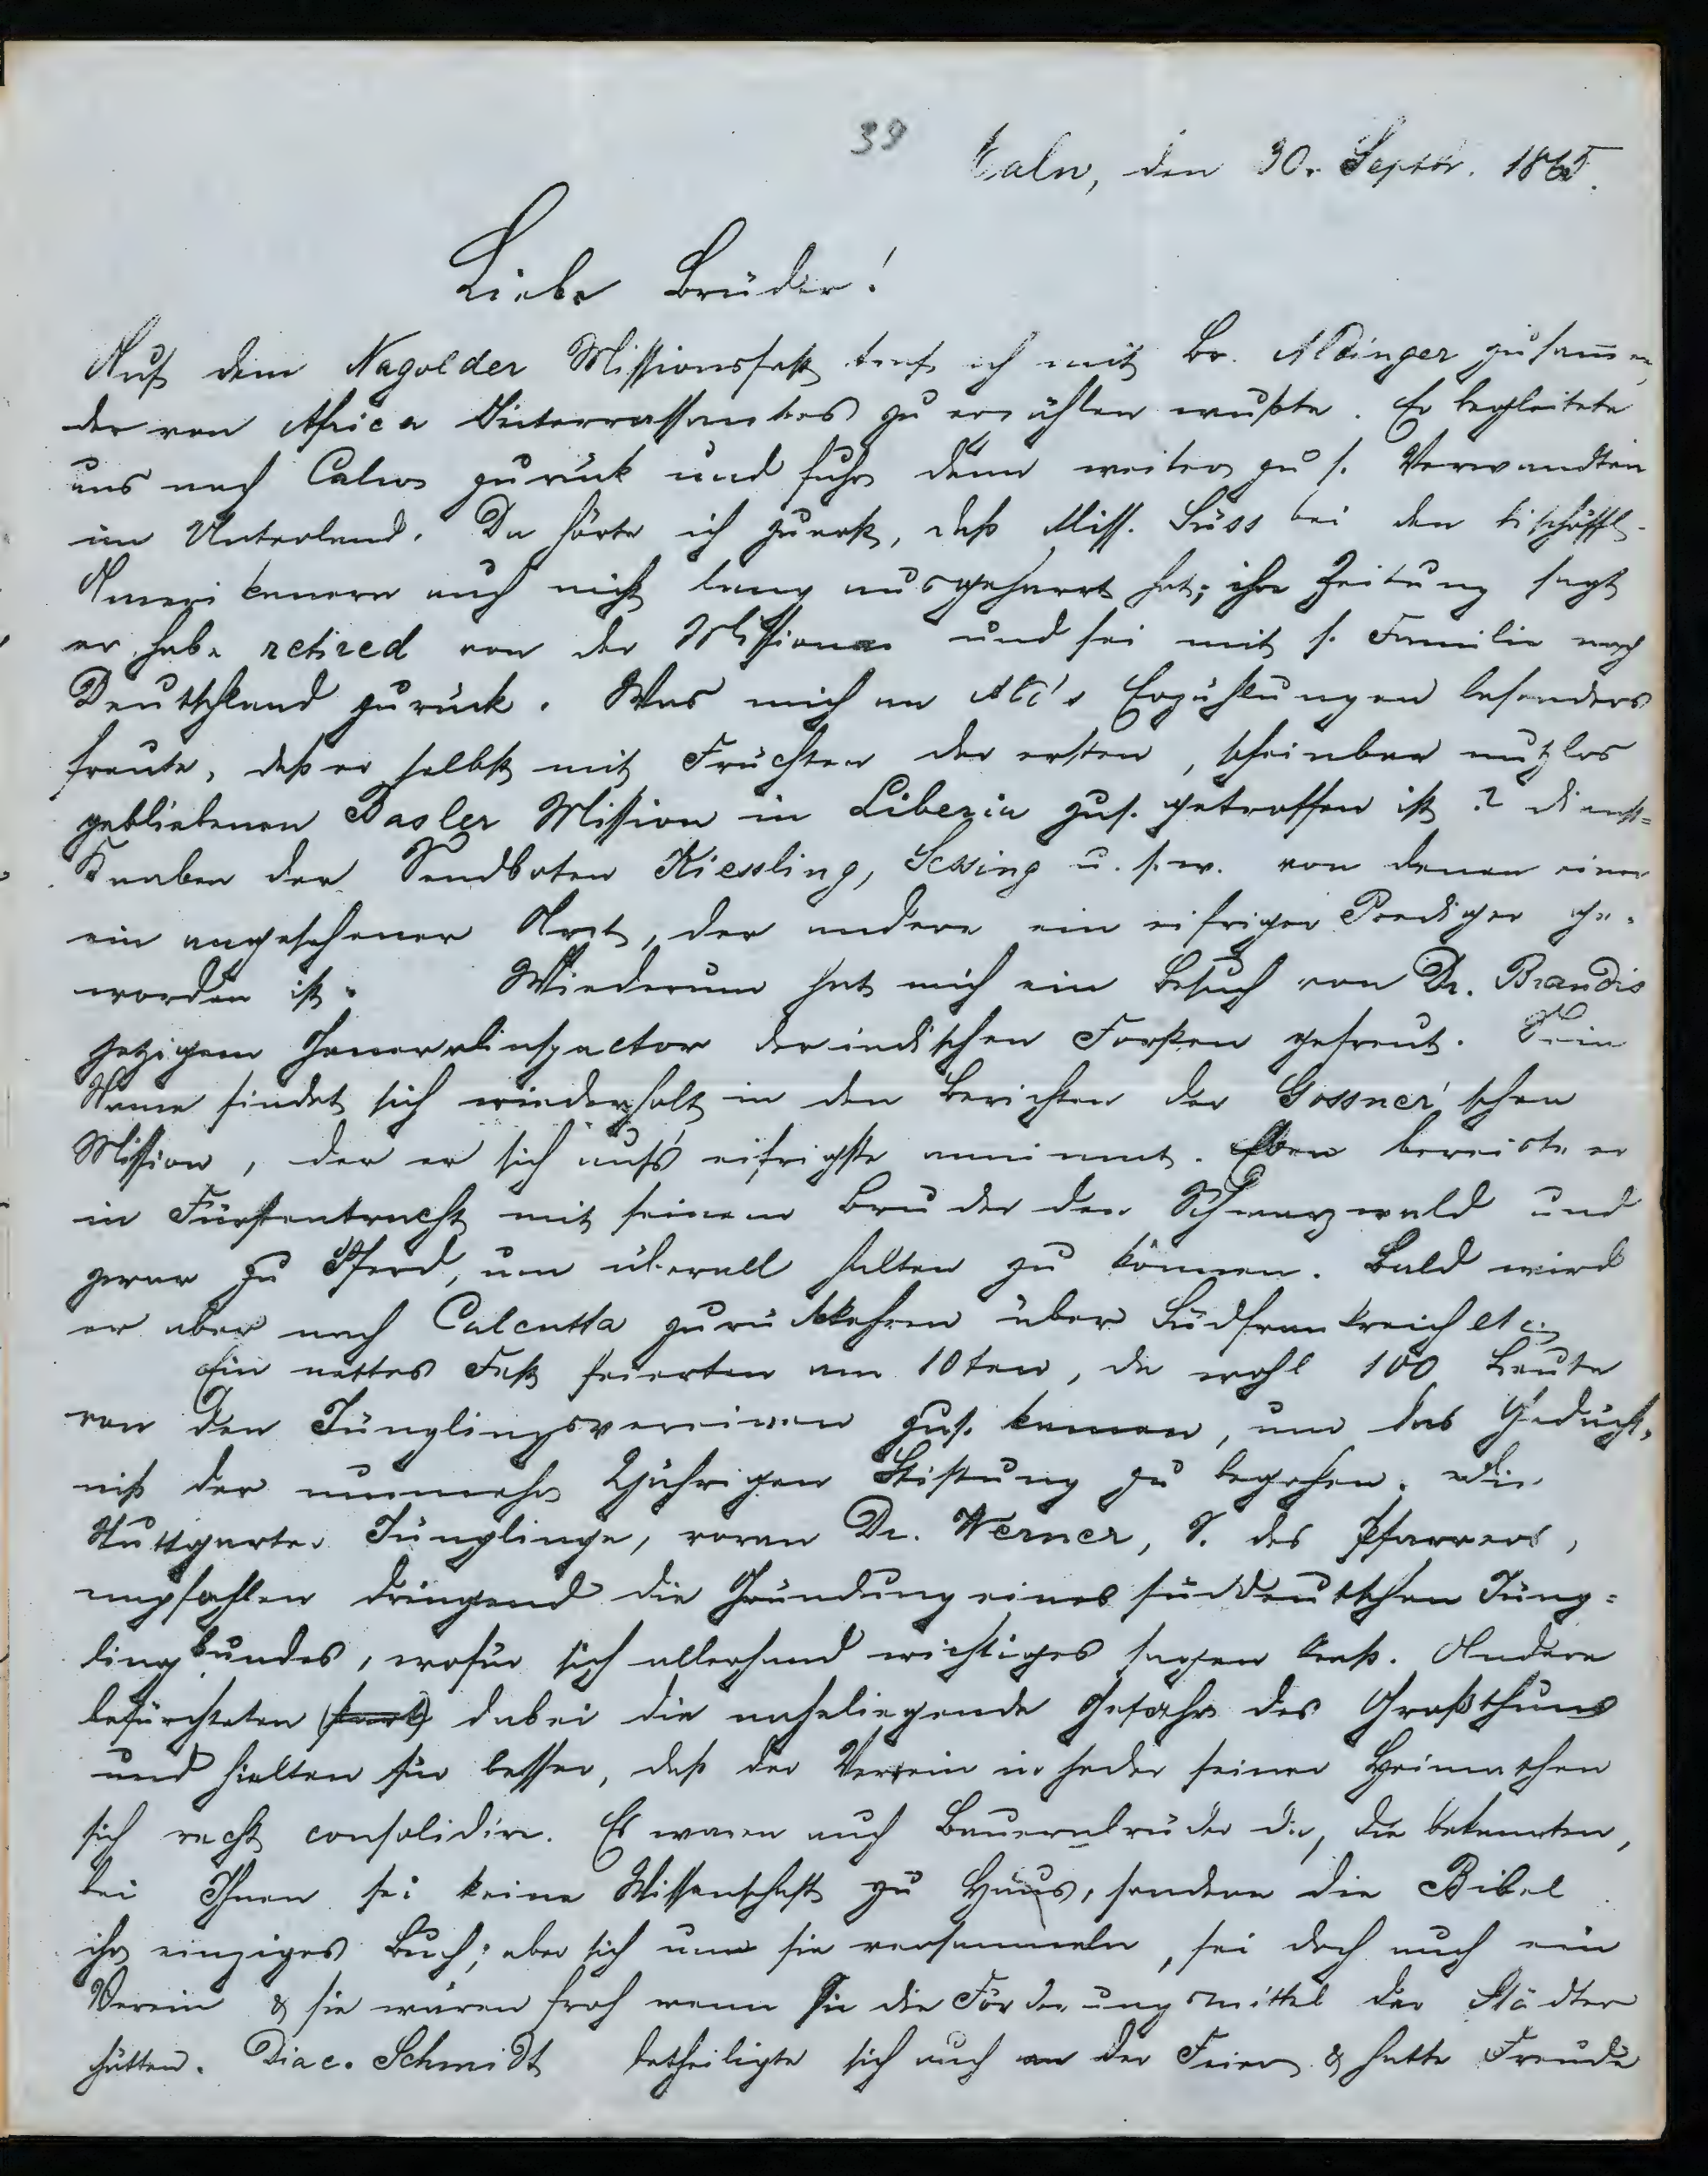 39
Calw, den 30. Septbr. 1865.
Liebe Brüder!
Auf dem Nagolder Missionsfest traf ich mit Br. Aldinger zusammen,
der von Africa Interressantes zu erzählen wußte. Er begleitete
uns nach Calw zurück und fuhr dann weiter zu s. Verwandten
im Unterland. Da hörte ich zuerst, daß Miss. Süss bei den bischöffl.
Amerikanern auch nicht lang ausgeharrt hat; ihre Zeitung sagt
er habe retired von der Mission und sei mit s. Familie nach
Deutschland zurück. Was mich an Al's Erzählungen besonders
freute, daß er selbst mit Früchten der ersten, scheinbar nutzlos
gebliebenen Basler Mission in Liberia zus. getroffen ist 2 dienst-
Knaben der Sendboten Kiessling, Sessing u. s. w. von denen einer
ein angesehener Arzt, der andere ein eifriger Prediger ge-
worden ist. Wiederum hat mich ein Besuch von Dr. Brandis
jetzigem Generalinspector der indischen Forsten gefreut. Sein
Name findet sich wiederholt in den Berichten der Gossner'schen
Mission, der er sich aufs eifrigste annimmt. Eben bereiste er
in Fürstentracht mit seinem Bruder den Schwarzwald und
zwar zu Pferd, um überall halten zu können. Bald wird
er aber nach Calcutta zurückkehren über Südfrankreich etc.
Ein nettes Fest feierten am 10ten, da wohl 100 Leute
von den Jünglingsvereinen zus. kamen, um das Gedächt-
niß der nunmehr 2jährigen Stiftung zu begehen. Die
Stuttgarter Jünglinge, voran Dr. Werner, S. des Pfarrers,
empfahlen dringend die Gründung eines süddeutschen Jüng-
lingbundes, wofür sich allerhand wichtiges sagen ließ. Andere
befürchteten dabei die naheliegende Gefahr des Großthuns
und hielten für besser, daß der Verein in jeder seiner Heimathen
sich recht consolidire. Es waren auch Bauernbrüder da, die bekannten,
bei Ihnen sei keine Wissenschaft zu Haus, sondern die Bibel
ihr einziges Buch; aber sich um sie versammeln, sei doch auch ein
Verein & sie wären froh wenn sie die Förderungsmittel der Städter
hätten. Diac. Schmidt betheiligte sich auch an der Feier & hatte Freude